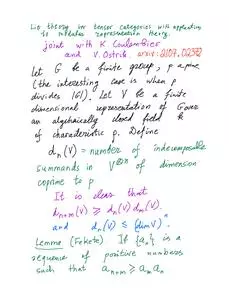 Lie theory in tensor categories with applications
to modular representation theory.
joint with K. Coulembier
and V. Ostrik arxiv:2107.02372
Let G be a finite group, p a prime
(the interesting case is when p
divides |G|). Let V be a finite
dimensional representation of G over
an algebraically closed field k
of characteristic p. Define
dₙ(V) = number of indecomposable
summands in V^{⊗n} of dimension
coprime to p
It is clear that
dₙ₊ₘ(V) ≥ dₙ(V) dₘ(V).
and dₙ(V) ≤ (dim V)ⁿ
Lemma (Fekete) If {aₙ} is a
sequence of positive numbers
such that aₙ₊ₘ ≥ aₘ aₙ